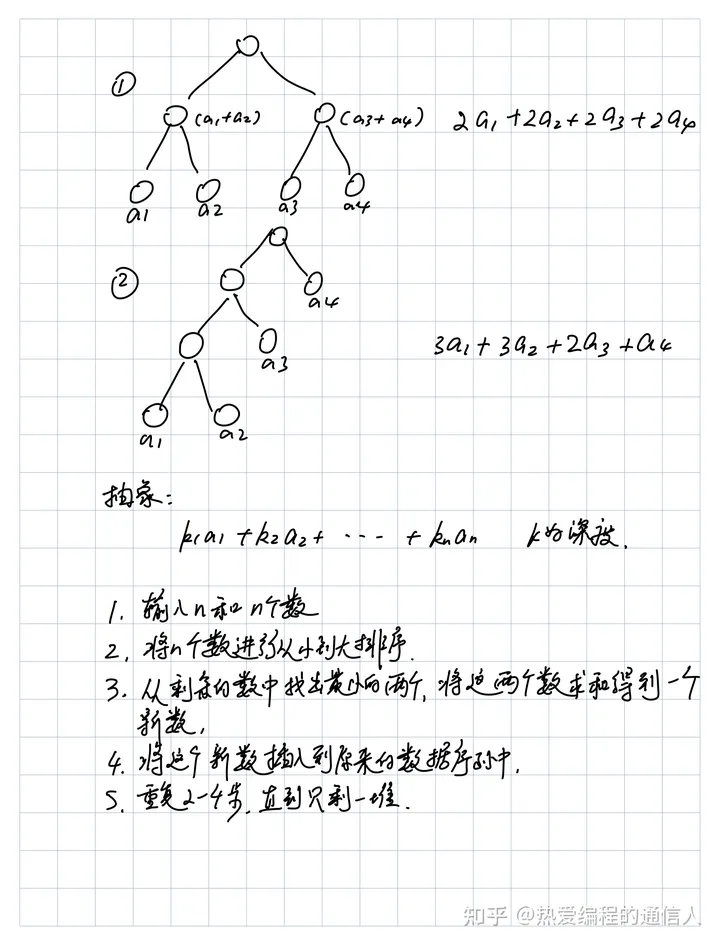 ①
(a1+a2)
(a3+a4)
2a1+2a2+2a3+2a4
a1
a2
a3
a4
②
a4
a3
3a1+3a2+2a3+a4
a1
a2
抽象:
k1a1+k2a2+ ··· + knan k为深度.
1. 输入n和n个数
2. 将n个数进行从小到大排序.
3. 从剩余的数中找出最小的两个, 将这两个数求和得到一个
新数,
4. 将这个新数插入到原来的数据序列中,
5. 重复2-4步, 直到只剩一堆.
知乎 @热爱编程的通信人